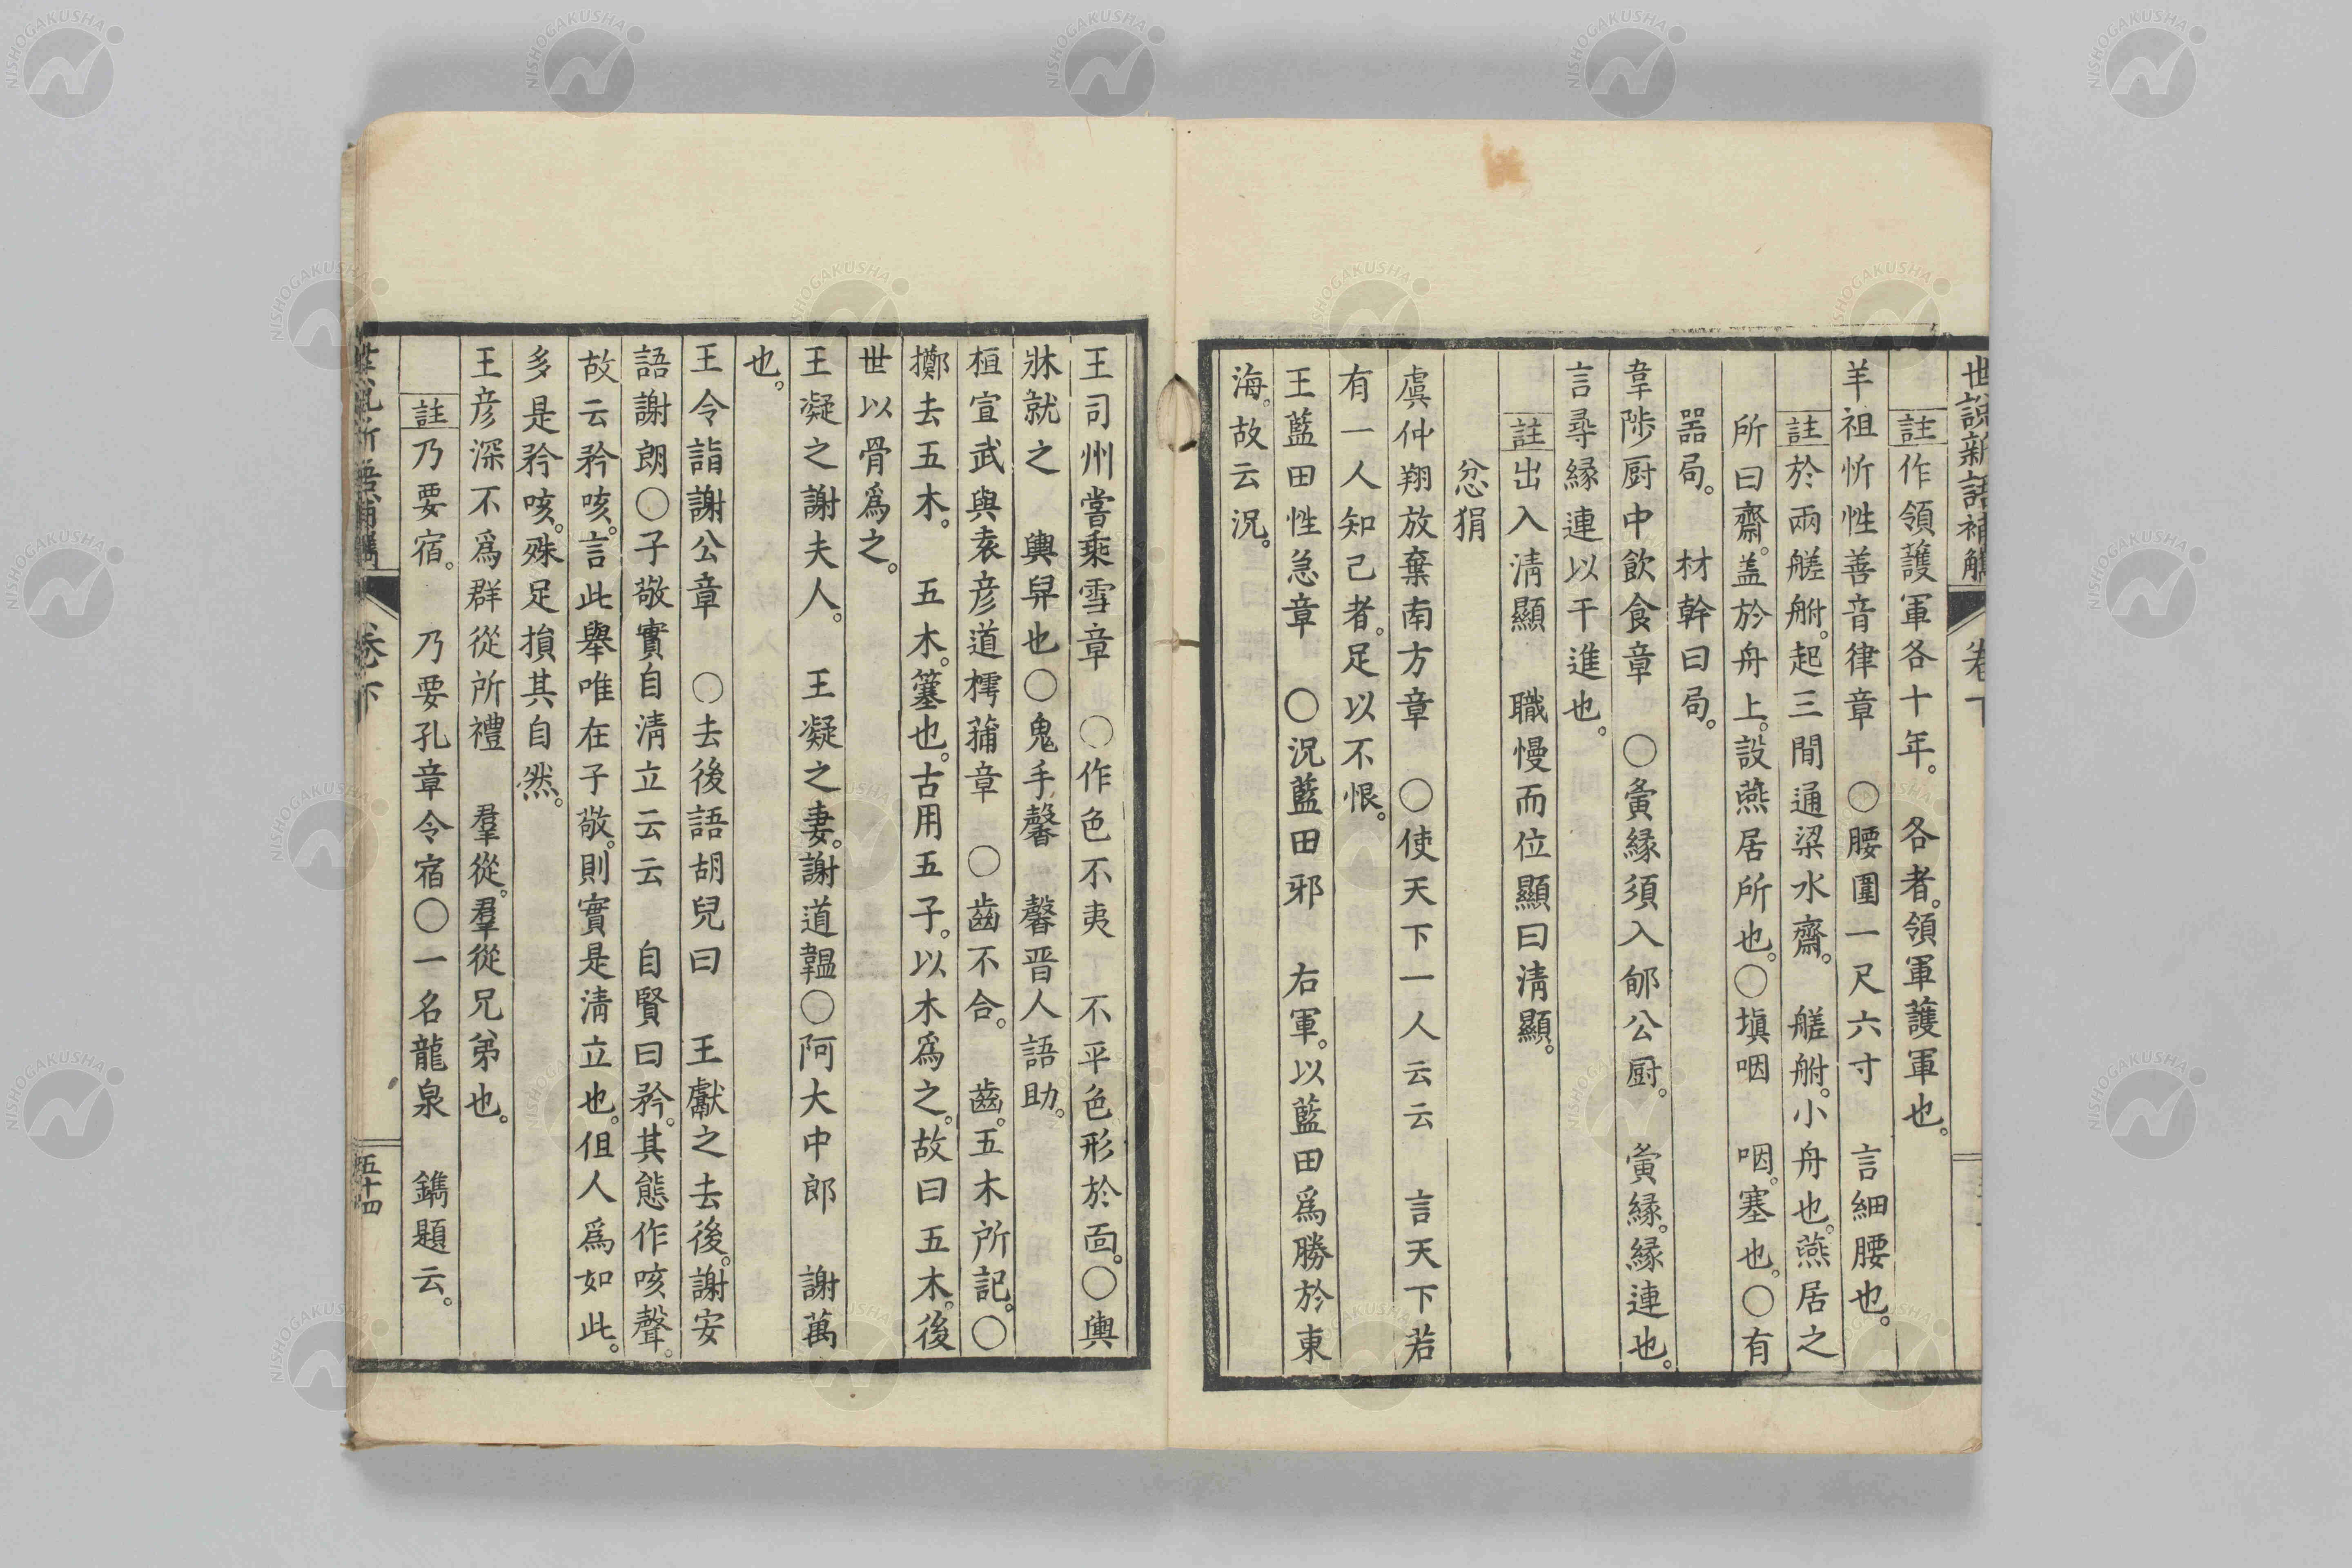 世說新語補觿 卷下
註作領護軍各十年。 各者。領軍護軍也。
羊祖忻性善音律章 〇腰圍一尺六寸 言細腰也。
註於兩艖艀。起三間通梁水齋。 艖艀。小舟也。燕居之
所曰齋。盖於舟上。設燕居所也。〇塡咽 咽。塞也。〇有
器局。 材幹曰局。
韋陟厨中飲食章 〇夤縁須入郇公厨。 夤縁。縁連也。
言尋縁連以干進也。
註出入淸顯 職慢而位顯曰淸顯。
忿狷
虞仲翔放棄南方章 〇使天下一人云云 言天下若
有一人知己者。足以不恨。
王藍田性急章 〇況藍田邪 右軍。以藍田爲勝於東
海。故云況。
王司州嘗乘雪章 〇作色不夷 不平色形於面。〇輿
牀就之 輿舁也〇鬼手馨 馨晋人語助。
桓宣武與袁彦道樗蒱章 〇齒不合。 齒。五木所記。〇
擲去五木。 五木。簺也。古用五子。以木爲之。故曰五木。後
世以骨爲之。
王凝之謝夫人。 王凝之妻。謝道韞〇阿大中郎 謝萬
也。
王令詣謝公章 〇去後語胡兒曰 王獻之去後。謝安
語謝朗〇子敬實自淸立云云 自賢曰矜。其態作咳聲。
故云矜咳。言此舉唯在子敬。則實是淸立也。伹人爲如此。
多是矜咳。殊足損其自然。
王彦深不爲群從所禮 羣從。羣從兄弟也。
註乃要宿。 乃要孔章令宿〇一名龍泉 鐫題云。
世說新語補觿 卷下 五十四